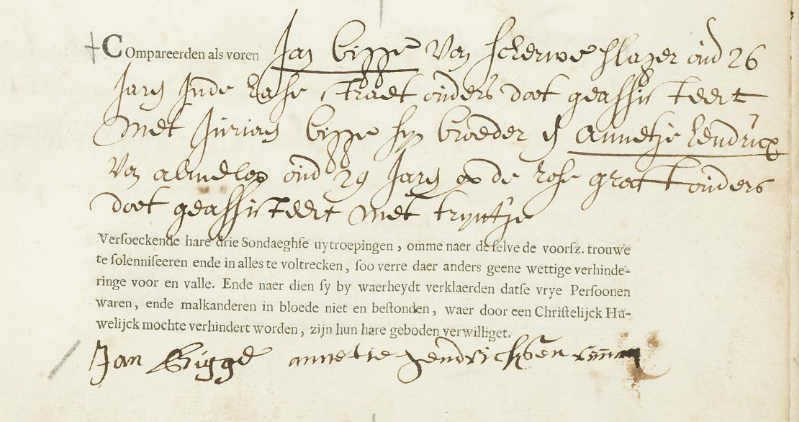 Compareerden als voren Jan bigge Van scherwe slaper oud 26
Jaren Inde Rose straet ouders doot geassisteert
Met Jurian bigge syn broeder en Annetje hendricx
Van almeloo oud 29 Jaren op de rose graft ouders
doot geassisteert Met tryntje
Versoeckende hare drie Sondaeghse uytroepingen, omme naer de selve de voorsz. trouwe
te solenniseeren ende in alles te voltrecken, soo verre daer anders geene wettige verhinde-
ringe voor en valle. Ende naer dien sy by waerheydt verklaerden datse vrye Persoonen
waren, ende malkanderen in bloede niet en bestonden, waer door een Christelijck Hu-
welijck mochte verhindert worden, zijn hun hare geboden verwilliget.
Jan Bigge annetie hendrichsen